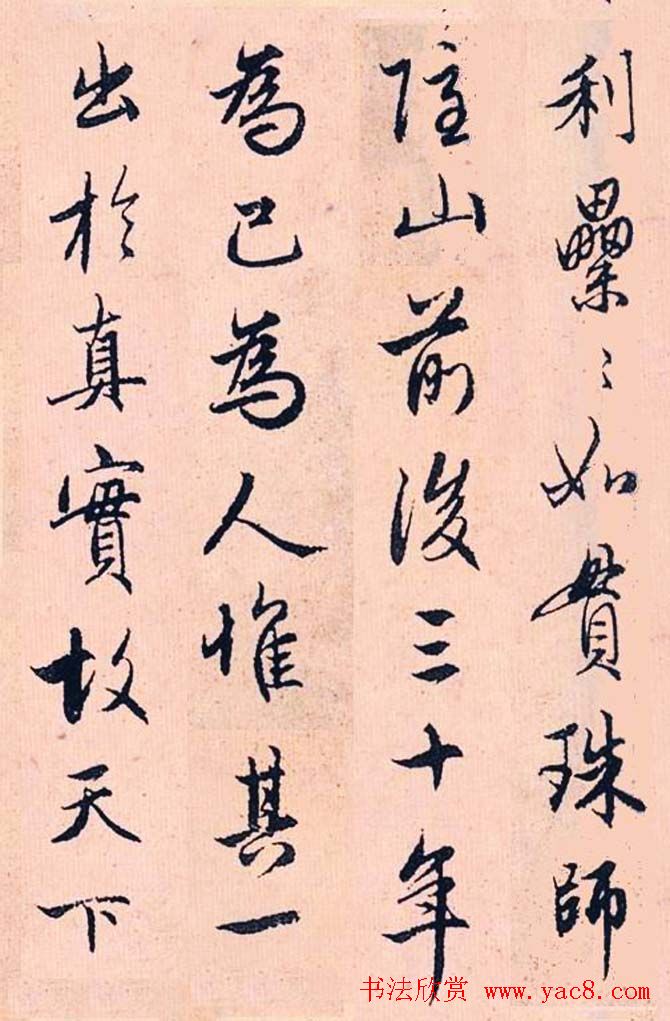 利纍〻如貫珠師
住山前後三十年
為己為人惟其一
出於真實故天下
书法欣赏 www.yac8.com